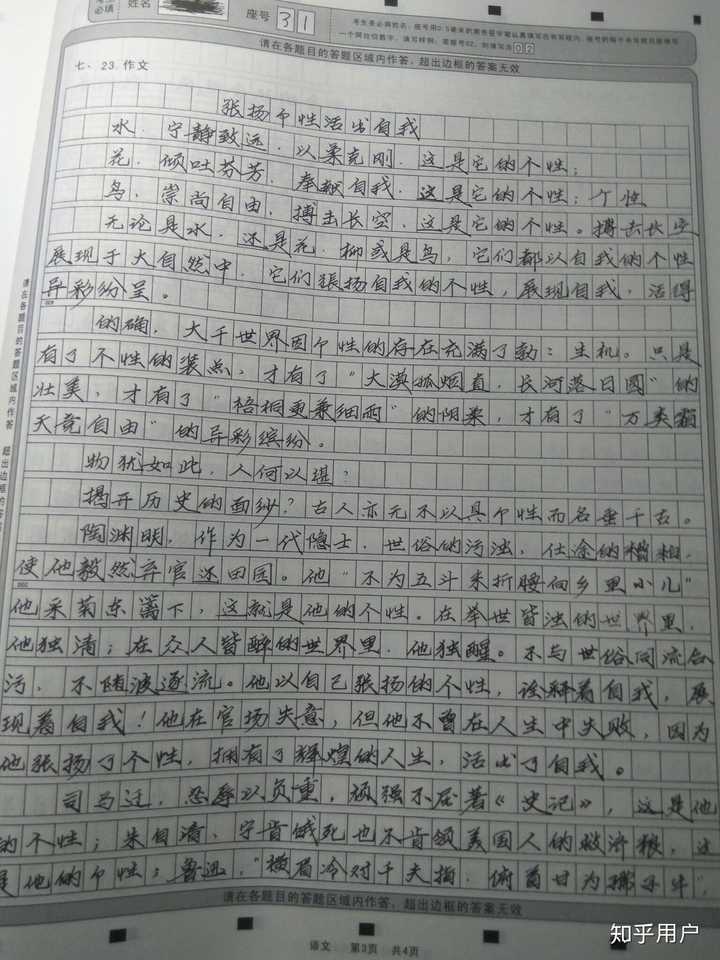 必填
姓名
座号 31
考生务必将姓名、座号用0.5毫米的黑色签字笔认真填写在书写框内，座号的每个书写框只能填写
一个阿拉伯数字。填写样例：若座号02，则填写为 02
请在各题目的答题区域内作答，超出边框的答案无效
七、23.作文
张扬个性活出自我
水，宁静致远，以柔克刚，这是它的个性；
花，倾吐芬芳，奉献自我，这是它的个性；个性
鸟，崇尚自由，搏击长空，这是它的个性。搏击长空
无论是水，还是花，抑或是鸟，它们都以自我的个性
展现于大自然中，它们张扬自我的个性，展现自我，活得
异彩纷呈。
的确，大千世界因个性的存在充满了勃勃生机。只是
有了个性的装点，才有了“大漠孤烟直，长河落日圆”的
壮美，才有了“梧桐更兼细雨”的阴柔，才有了“万类霜
天竞自由”的异彩缤纷。
物犹如此，人何以堪？
揭开历史的面纱？古人亦无不以其个性而名垂千古。
陶渊明，作为一代隐士，世俗的污浊，仕途的
使他毅然弃官还田园。他“不为五斗米折腰向乡里小儿”
他采菊东篱下，这就是他的个性。在举世皆浊的世界里，
他独清；在众人皆醉的世界里，他独醒。不与世俗同流合
污，不随波逐流。他以自己张扬的个性，诠释着自我，展
现着自我！他在官场失意，但他不曾在人生中失败，因为
他张扬了个性，拥有了辉煌的人生，活出了自我。
司马迁，忍辱以负重，顽强不屈著《史记》，这是他
的个性；朱自清，宁肯饿死也不肯领美国人的救济粮，这
是他的个性；鲁迅，“横眉冷对千夫指，俯首甘为孺子牛”，
请在各题目的答题区域内作答，超出边框的答案无效
语文 第3页 共4页
请在各题目的答题区域内作答 超出边框的答案无效
知乎用户